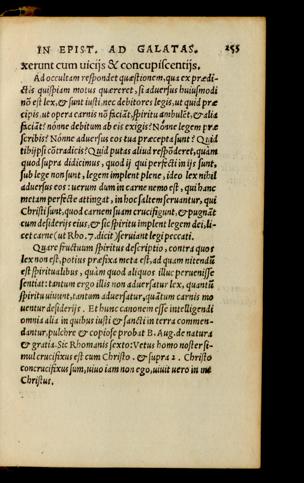 IN EPIST. AD GALATAS. 255
xerunt cum uicijs & concupiscentijs.
Ad occultam respondet quæstionem, qua ex prædi-
ctis quispiam motus quæreret, si aduersus huiusmodi
nō est lex, & sunt iusti, nec debitores legis, ut quid præ
cipis ut opera carnis nō faciāt, spiritu ambulēt, & alia
faciāt? nōnne debitum ab eis exigis? Nōnne legem præ
scribis? Nōnne aduersus eos tua præcepta sunt? Quid
tibijpsi cōtradicis? Quid putas aliud respōderet, quàm
quod supra didicimus, quod ij qui perfecti in ijs sunt,
sub lege non sunt, legem implent plene, ideo lex nihil
aduersus eos: uerum dum in carne nemo est, qui hanc
metam perfecte attingat, in hoc saltem seruantur, qui
Christi sunt, quod carnem suam crucifigunt, & pugnāt
cum desiderijs eius, & sic spiritu implent legem dei, li-
cet carne (ut Rho. 7. dicit) seruiant legi peccati.
Quare fructuum spiritus descriptio, contra quos
lex non est, potius præfixa meta est, ad quam nitendū
est spiritualibus, quàm quod aliquos illuc peruenisse
sentiat: tantum ergo illis non aduersatur lex, quantū
spiritu uiuunt, tantum aduersatur, quātum carnis mo
uentur desiderijs. Et hunc canonem esse intelligendi
omnia alia in quibus iusti & sancti in terra commen-
dantur, pulchre & copiose probat B. Aug. de natura
& gratia. Sic Rhomanis sexto: Vetus homo noster si-
mul crucifixus est cum Christo. & supra 2. Christo
concrucifixus sum, uiuo iam non ego, uiuit uero in me
Christus.